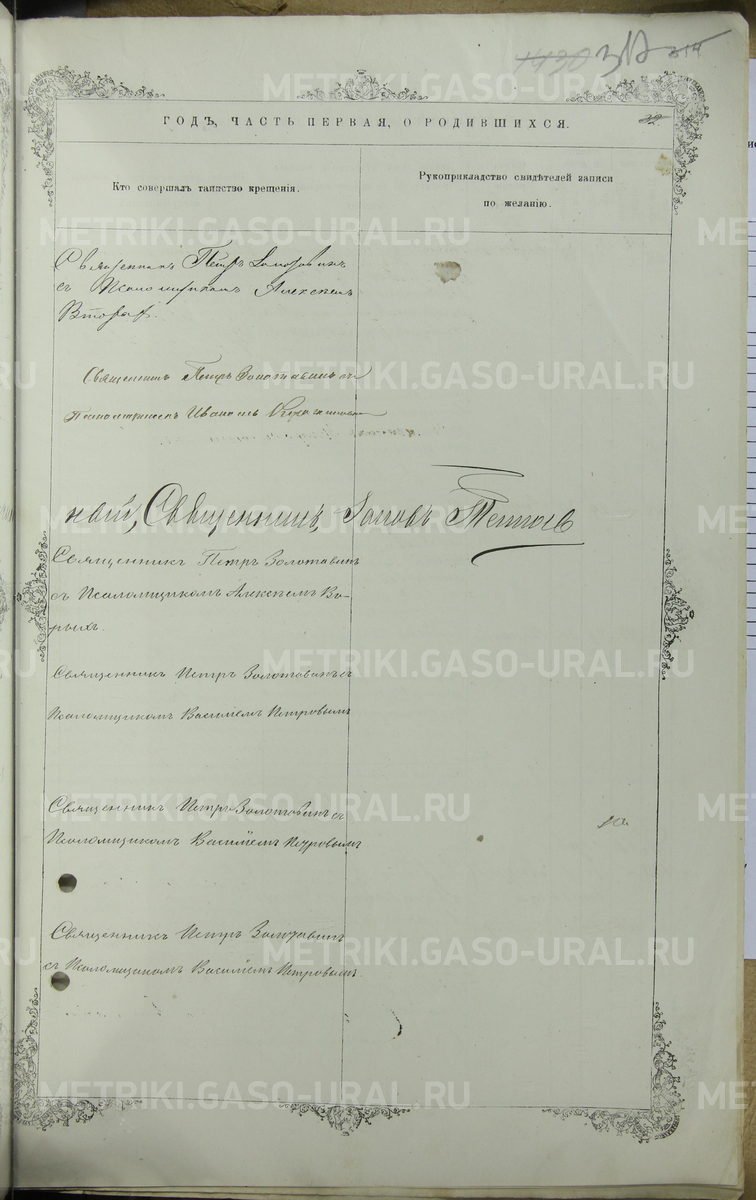 1490 317 314
ГОДЪ, ЧАСТЬ ПЕРВАЯ, О РОДИВШИХСЯ.
Кто совершалъ таинство крещенія.
Рукоприкладство свидѣтелей записи
по желанію.
Священникъ Петръ Золотавинъ
съ Псаломщикомъ Алексѣемъ
Священникъ Петръ Золотавинъ съ
Псаломщикомъ Иваномъ
Священникъ
Священникъ Петръ Золотавинъ
съ Псаломщикомъ Алексѣемъ Вто-
рыхъ.
Священникъ Петръ Золотавинъ съ
Псаломщикомъ Василіемъ Петровымъ
Священникъ Петръ Золотовинъ съ
Псаломщикомъ Василіемъ Петровымъ
Священникъ Петръ Золотавинъ
съ Псаломщикомъ Василіемъ Петровымъ.
METRIKI.GASO-URAL.RU